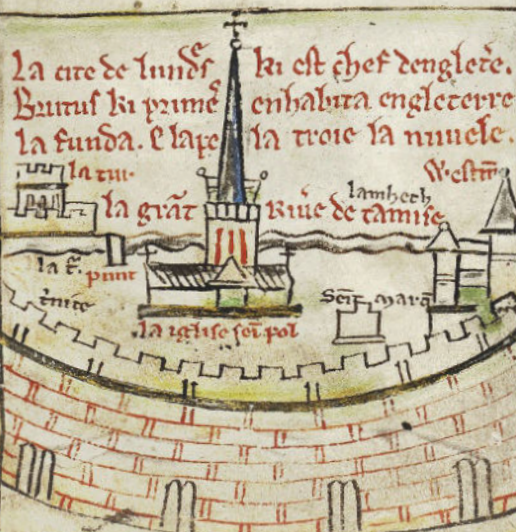 La cite de lundͬs ki est chef dengletͬe.
Brutus ki primeͬ enhabita engleterre
la funda. E lape la troie la nuuele.
la tur.
Westm̄
lamheth
la grāt Riuͬe de tamise
la t̄.
punt
t̄nite
Seīt marḡ
la iglise seī pol